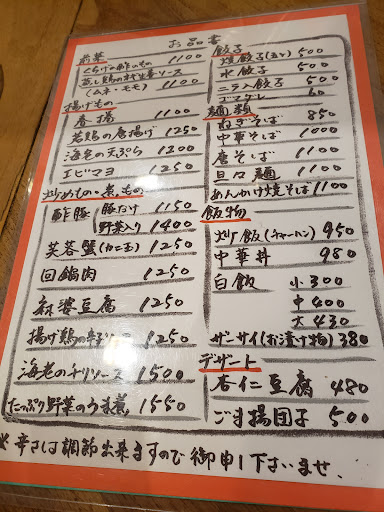 お品書
前菜
くらげの酢のもの 1100
蒸し鶏の辛生姜ソース
(ムネ・モモ) 1100
揚げもの
春揚 1100
若鶏の唐揚げ 1250
海老の天ぷら 1200
エビマヨ 1250
炒めもの・煮もの
酢豚 豚だけ 1150
野菜入り 1400
芙蓉蟹(カニ玉) 1250
回鍋肉 1250
麻婆豆腐 1250
揚げ鶏の辛子ソース 1250
海老のチリソース 1500
たっぷり野菜のうま煮 1550
餃子
焼餃子(五ヶ) 500
水餃子 500
ニラ入餃子 500
60
麺類
ねぎそば 850
中華そば 1000
唐そば 1100
旦々麺 1100
あんかけ焼そば 1100
飯物
炒飯(チャーハン) 950
中華丼 980
白飯 小300
中400
大430
ザーサイ(お漬け物) 380
デザート
杏仁豆腐 480
ごま揚団子 500
※辛さは調節出来ますので御申し下さいませ。